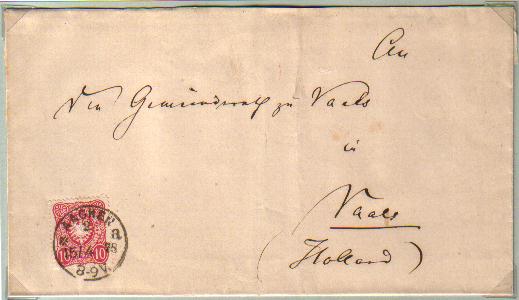 An
Den Gemeinderath zu Vaals
in
Vaals
(Holland)
AACHEN
2 a
15/4 78
8-9V.
10 10